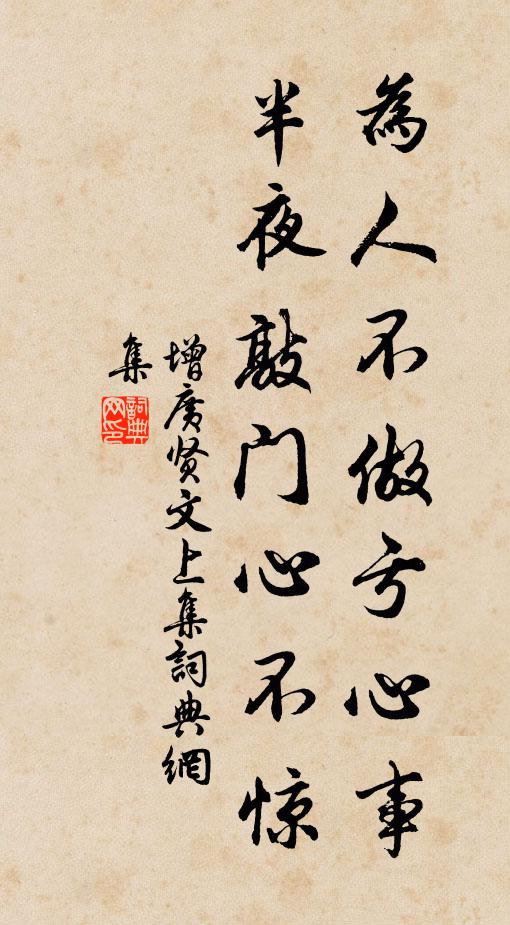 為人不做亏心事
半夜敲门心不惊
增廣贤文上集詞典網
集
詞典
网印